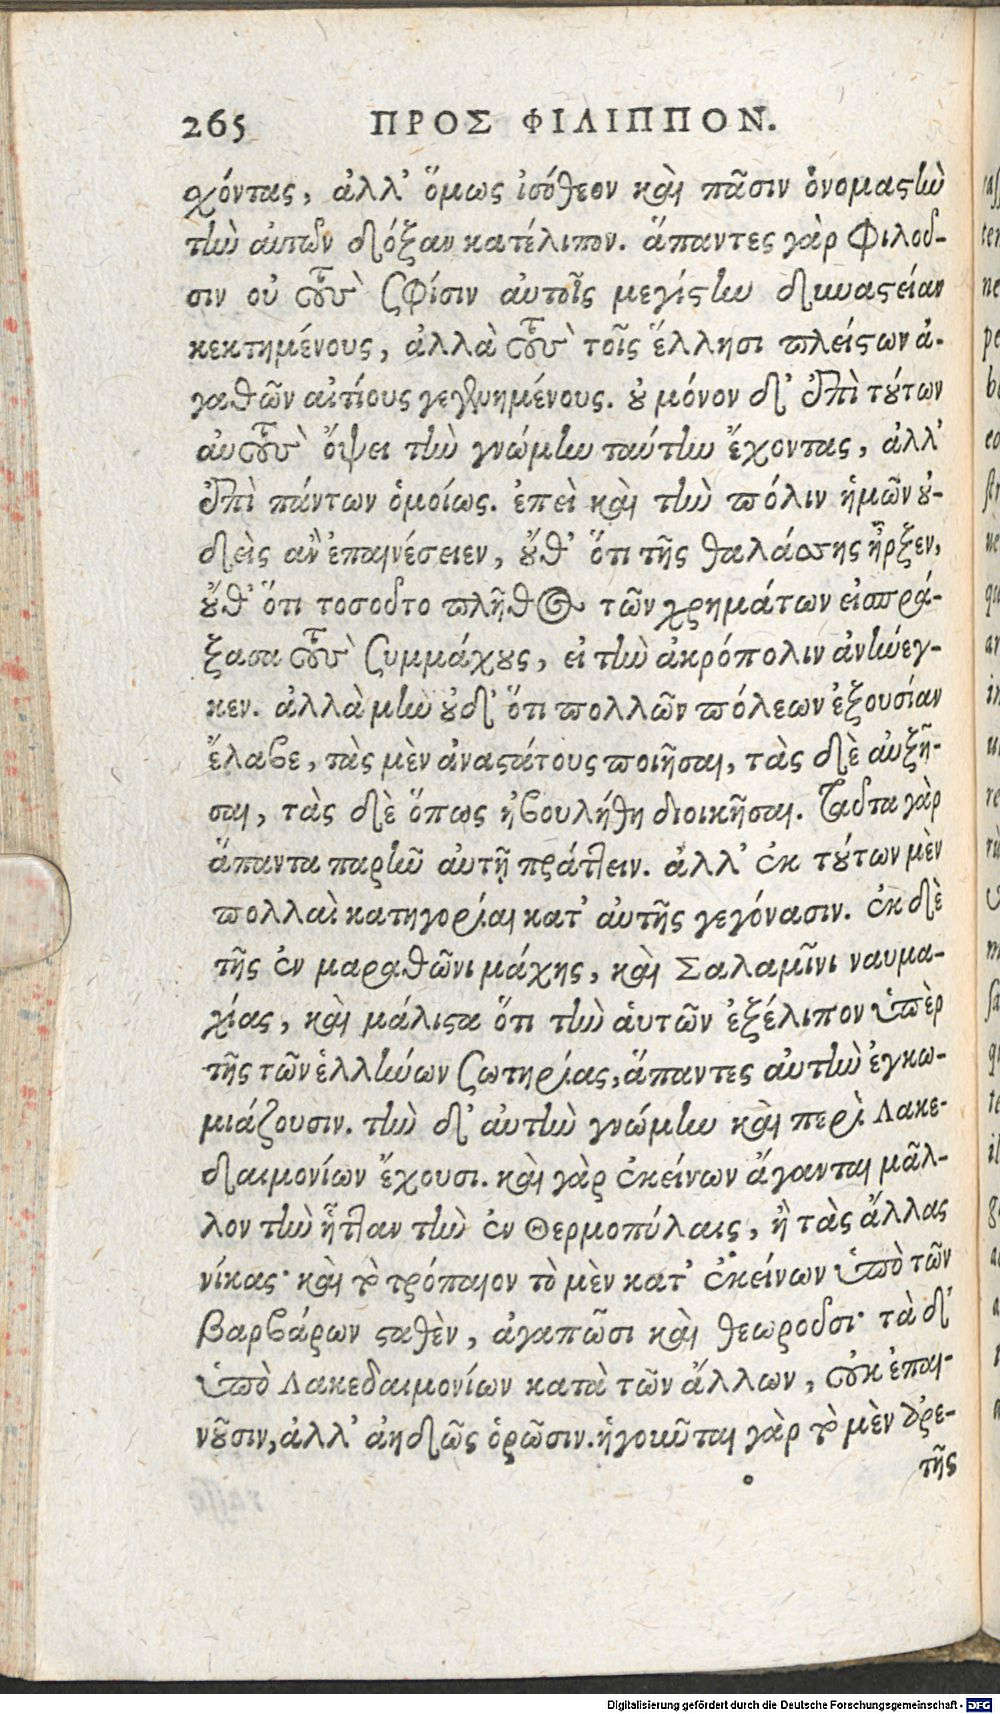 265 ΠΡΟΣ ΦΙΛΙΠΠΟΝ.
χόντας, ἀλλ' ὅμως ἰσόθεον καὶ πᾶσιν ὀνομαστὴν
τὴν αὑτῶν δόξαν κατέλιπον. ἅπαντες γὰρ φιλοῦ-
σιν οὐ τοὺς σφίσιν αὐτοῖς μεγίστην δυναστείαν
κεκτημένους, ἀλλὰ τοὺς τοῖς ἕλλησι πλείστων ἀ-
γαθῶν αἰτίους γεγενημένους. οὐ μόνον δ' ἐπὶ τούτων
αὐτοὺς ὄψει τὴν γνώμην ταύτην ἔχοντας, ἀλλ'
ἐπὶ πάντων ὁμοίως. ἐπεὶ καὶ τὴν πόλιν ἡμῶν οὐ-
δεὶς ἂν ἐπαινέσειεν, οὔθ' ὅτι τῆς θαλάσσης ἦρξεν,
οὔθ' ὅτι τοσοῦτο πλῆθος τῶν χρημάτων εἰσπρά-
ξασα τοὺς συμμάχους, εἰ τὴν ἀκρόπολιν ἀνήνεγ-
κεν. ἀλλὰ μὴν οὐδ' ὅτι πολλῶν πόλεων ἐξουσίαν
ἔλαβε, τὰς μὲν ἀναστάτους ποιῆσαι, τὰς δὲ αὐξῆ-
σαι, τὰς δὲ ὅπως ἠβουλήθη διοικῆσαι. Ταῦτα γὰρ
ἅπαντα παρῆν αὐτῇ πράττειν. ἀλλ' ἐκ τούτων μὲν
πολλαὶ κατηγορίαι κατ' αὐτῆς γεγόνασιν. ἐκ δὲ
τῆς ἐν μαραθῶνι μάχης, καὶ Σαλαμῖνι ναυμα-
χίας, καὶ μάλιστα ὅτι τὴν ἁυτῶν ἐξέλιπον ὑπὲρ
τῆς τῶν ἑλλήνων σωτηρίας, ἅπαντες αὐτὴν ἐγκω-
μιάζουσιν. τὴν δ' αὐτὴν γνώμην καὶ περὶ Λακε-
δαιμονίων ἔχουσι. καὶ γὰρ ἐκείνων ἄγανται μᾶλ-
λον τὴν ἧτταν τὴν ἐν Θερμοπύλαις, ἢ τὰς ἄλλας
νίκας· καὶ τὸ τρόπαιον τὸ μὲν κατ' ἐκείνων ὑπὸ τῶν
βαρβάρων σταθὲν, ἀγαπῶσι καὶ θεωροῦσι· τὰ δ'
ὑπὸ Λακεδαιμονίων κατὰ τῶν ἄλλων, οὐκ ἐπαι-
νοῦσιν, ἀλλ' ἀηδῶς ὁρῶσιν. ἡγοῦνται γὰρ τὸ μὲν ἀρε-
τῆς
Digitalisierung gefördert durch die Deutsche Forschungsgemeinschaft - DFG